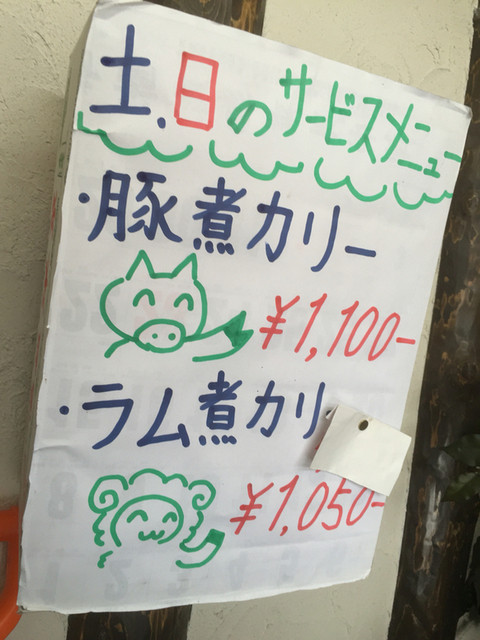 土、日のサービスメニュー
・豚煮カリー
¥1,100-
・ラム煮カリ
¥1,050-